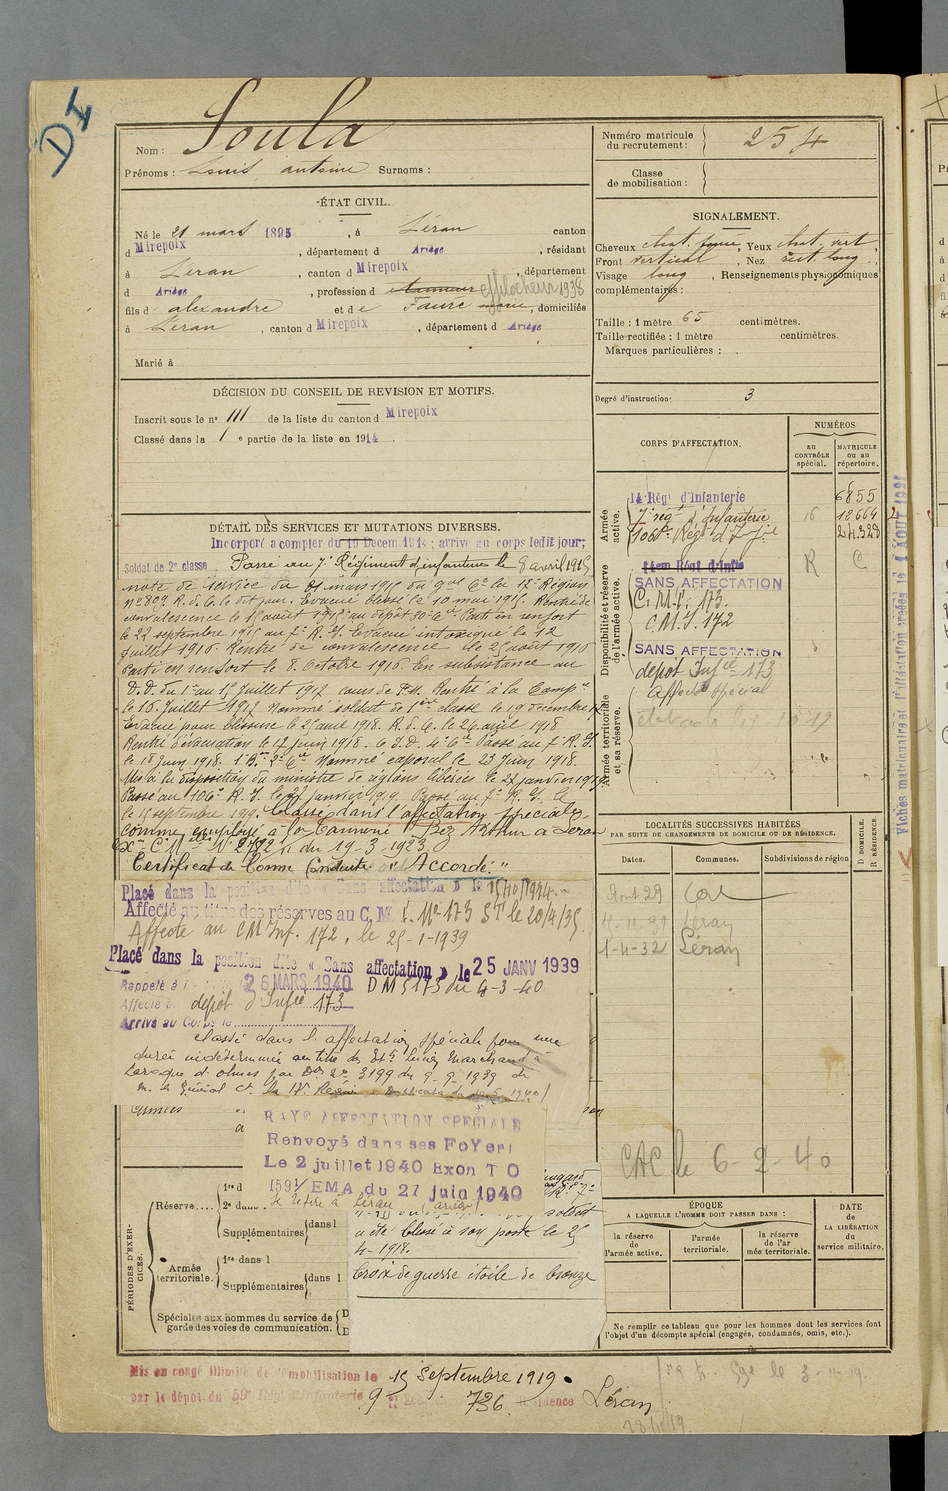 DI
Nom : Soula
Prénoms : Louis, antoine Surnoms :
ÉTAT CIVIL.
Né le 21 mars 1895, à Léran canton
d Mirepoix, département d Ariège, résidant
à Léran, canton d Mirepoix, département
d Ariège, profession d effilocheur 1938
fils d alexandre et de Faure marie, domiciliés
à Léran, canton d Mirepoix, département d Ariège
Marié à
DÉCISION DU CONSEIL DE REVISION ET MOTIFS.
Inscrit sous le n° 111 de la liste du canton d Mirepoix
Classé dans la 1 e partie de la liste en 1914.
DÉTAIL DES SERVICES ET MUTATIONS DIVERSES.
Incorporé a compter du 19 Decem. 1914 ; arrivé au corps ledit jour;
Soldat de 2e classe Passé au 7e Régiment d'infanterie le 8 avril 1915
note de service du 31 mars 1915 du gal Ct la 17e Région
n° 809 R. d. C. le dit jour. Evacué blessé le 10 mai 1915. Rentré de
convalescence le 15 août 1915 au dépôt 30e Cie Parti en renfort
le 22 septembre 1915 au 7e R. I. Evacué intoxiqué le 12
juillet 1916. Rentré de convalescence le 25 août 1916
Parti en renfort le 8 Octobre 1916. En subsistance au
D. D. du 1er au 15 juillet 1917 cours de F.M. Rentré à la Compie
le 16 Juillet 1917 Nommé soldat de 1ère classe le 19 décembre 17
Evacué pour blessure le 25 avril 1918. R. d. C. le 26 avril 1918
Rentré d'évacuation le 17 juin 1918. C. I. D. 4e Cie Passé au 7e R. I.
le 18 Juin 1918. 1er Bon 2e Cie Nommé caporal le 23 Juin 1918.
Mis à la disposition du ministre des régions libérées le 22 janvier 1919.
Passé au 106e R. I. le 22 Janvier 1919. Passé au 7e R. I. le
le 15 septembre 1919. Classé dans l'affectation spéciale
comme employé à la Tannerie Bez Arthur à Léran
du 19-3-1923.
Certificat de Bonne Conduite "Accordé"
Placé dans la position dite « Sans affectation » le 15/10/1934.
Affecté au titre des réserves au C. M. I. N° 173 ST le 20/4/35.
Affecté au CM Inf. 172, le 25-1-1939
Placé dans la position dite « Sans affectation » le 25 JANV 1939
Rappelé à 26 MARS 1940 DM 5173 du 4-3-40
Affecté a dépôt d'Infie 173
Arrivé au Corps le
Classé dans l'affectation spéciale pour une
durée indéterminée au titre des Ets
Laroque d'olmes par Don n° 3199 du 9-9-1939 de
M. le Général Ct la 17e Région
RAYE AFFECTATION SPECIALE
Renvoyé dans ses FoYers
Le 2 juillet 1940 Exon T O
1591/EMA du 27 juin 1940
Se retire à Léran (Ariège)
soldat
a été blessé à son poste le 25
4-1918.
Croix de guerre étoile de bronze
PÉRIODES D'EXERCICES.
Réserve.... 1re d
2e dans
Supplémentaires dans l
Armée territoriale. 1re dans l
Supplémentaires dans l
Spéciales aux hommes du service de
garde des voies de communication.
Mis en congé illimité de démobilisation le 15 Septembre 1919.
par le dépôt du 59e Régt d'Infanterie 736 Résidence Léran
Numéro matricule
du recrutement : 254
Classe
de mobilisation :
SIGNALEMENT.
Cheveux chat. foncé, Yeux chat. vert
Front vertical, Nez rect. long.
Visage long, Renseignements physionomiques
complémentaires :
Taille : 1 mètre 65 centimètres.
Taille rectifiée : 1 mètre centimètres.
Marques particulières :
Degré d'instruction : 3
CORPS D'AFFECTATION.
NUMÉROS
au CONTRÔLE spécial.
MATRICULE ou au répertoire.
Armée active.
14 Régt d'Infanterie 6855
7e régt d'Infanterie 16 12664
106e Régt d'Infie 24.328
Disponibilité et réserve de l'armée active.
14em Régt d'Infie R C
SANS AFFECTATION
C. M. I. 173.
C. M. I. 172
SANS AFFECTATION
dépôt Infie 173
Armée territoriale et sa réserve.
Affecté spécial
LOCALITÉS SUCCESSIVES HABITÉES
PAR SUITE DE CHANGEMENTS DE DOMICILE OU DE RÉSIDENCE.
Dates. Communes. Subdivisions de région D DOMICILE. R RÉSIDENCE.
Aout 29
Léran
1-4-32 Léran
CAC le 6-2-40
ÉPOQUE
A LAQUELLE L'HOMME DOIT PASSER DANS :
la réserve de l'armée active.
l'armée territoriale.
la réserve de l'armée territoriale.
DATE de LA LIBÉRATION du service militaire.
Ne remplir ce tableau que pour les hommes dont les services font
l'objet d'un décompte spécial (engagés, condamnés, omis, etc.).
28/11/19